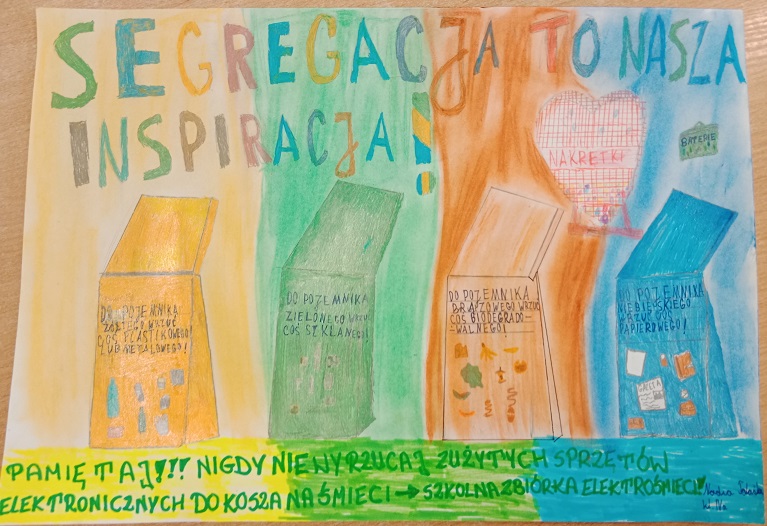 SEGREGACJA TO NASZA
INSPIRACJA!
NAKRĘTKI
BATERIE
DO POJEMNIKA
ŻÓŁTEGO WRZUĆ
COŚ PLASTIKOWEGO
LUB METALOWEGO!
DO POJEMNIKA
ZIELONEGO WRZUĆ
COŚ SZKLANEGO!
DO POJEMNIKA
BRĄZOWEGO WRZUĆ
COŚ BIODEGRADO-
WALNEGO!
DO POJEMNIKA
NIEBIESKIEGO
WRZUĆ COŚ
PAPIEROWEGO!
PAMIĘTAJ!!! NIGDY NIE WYRZUCAJ ZUŻYTYCH SPRZĘTÓW
ELEKTRONICZNYCH DO KOSZA NA ŚMIECI → SZKOLNA ZBIÓRKA ELEKTROŚMIECI!
Nadia
kl